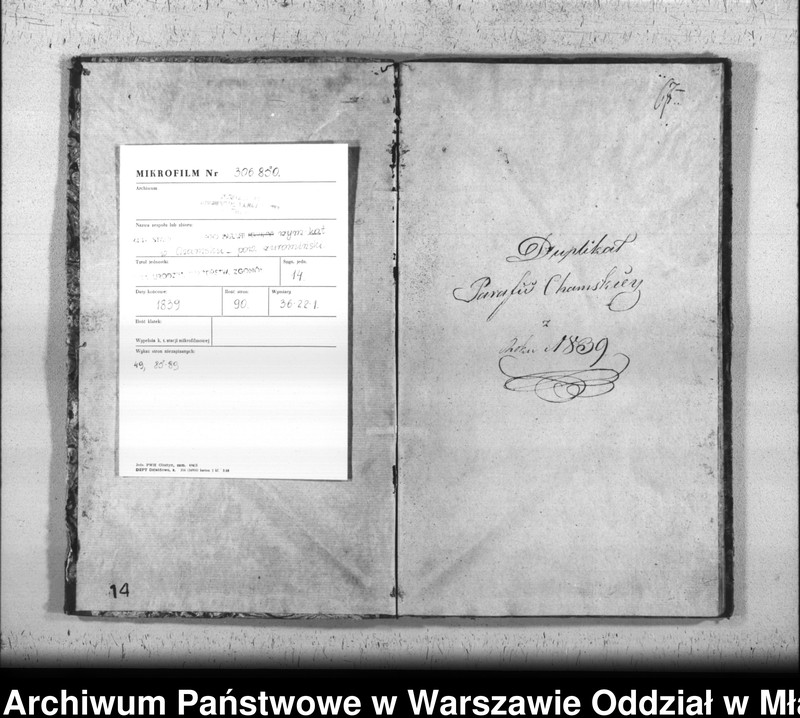 MIKROFILM Nr 306850.
Archiwum
Nazwa zespołu lub zbioru:
rzym-kat
pow. żuromiński
Tytuł jednostki: Sygn. jedn.
14.
Daty końcowe Ilość stron: Wymiary
1839 90. 36·22·1.
Ilość klatek:
Wypełnia k. z stacji mikrofilmowej
Wykaz stron niezapisanych:
49, 85-89
14
67
Duplikat
Parafii Chamskiey
z
Roku 1839
Archiwum Państwowe w Warszawie Oddział w Mła